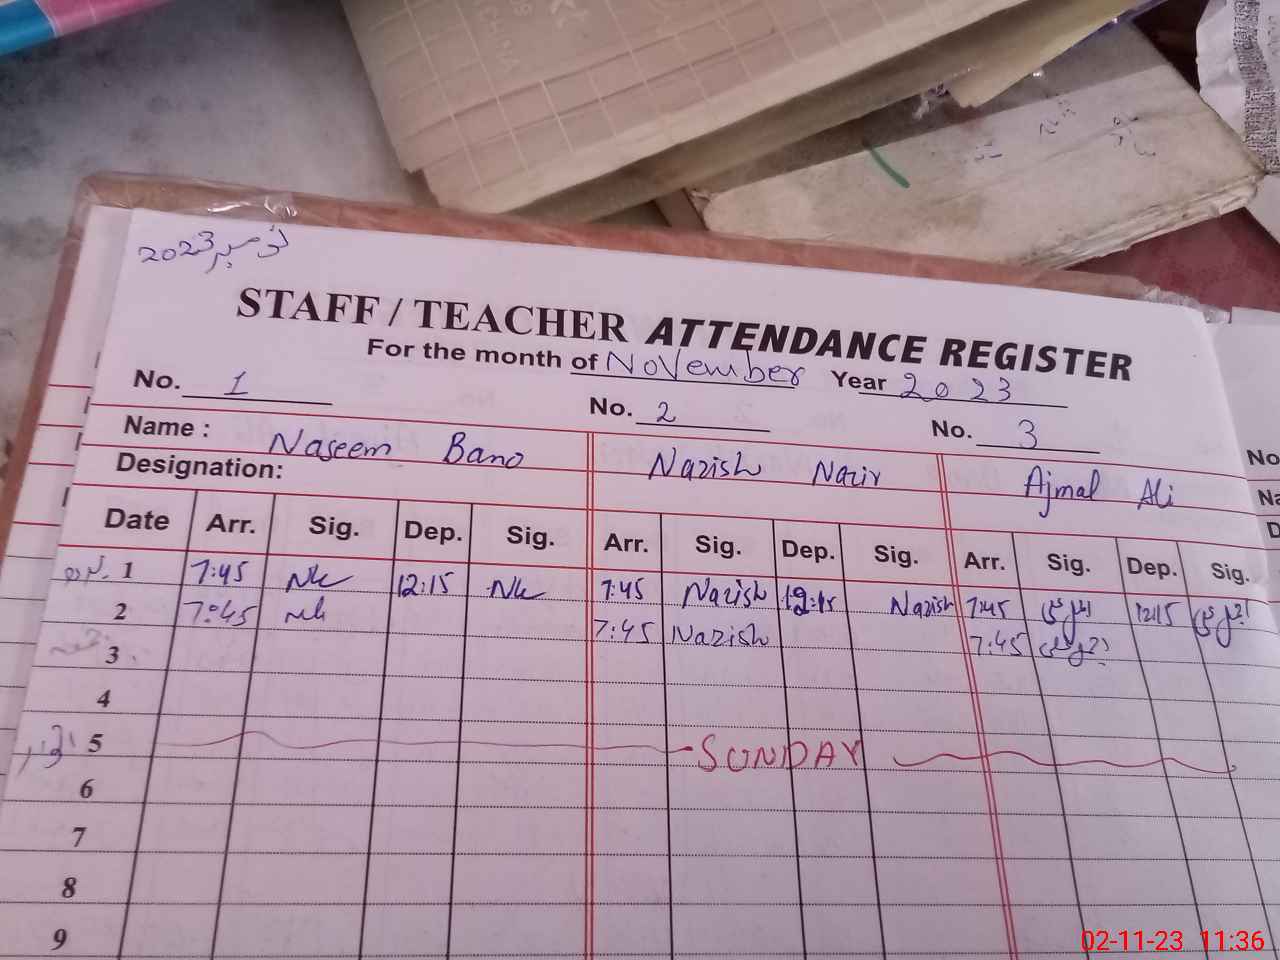 نومبر 2023
STAFF / TEACHER ATTENDANCE REGISTER
For the month of November Year 2023
No. 1 No. 2 No. 3
Name : Naseem Bano Nazish Nazir Ajmal Ali
Designation:
Date Arr. Sig. Dep. Sig. Arr. Sig. Dep. Sig. Arr. Sig. Dep. Sig.
1 7:45 Nk 12:15 Nk 7:45 Nazish 12:15 Nazish 7:45 12:15
2 7:45 Nk 7:45 Nazish 7:45
3
4
5 SUNDAY
6
7
8
9
No
Na
D
02-11-23 11:36